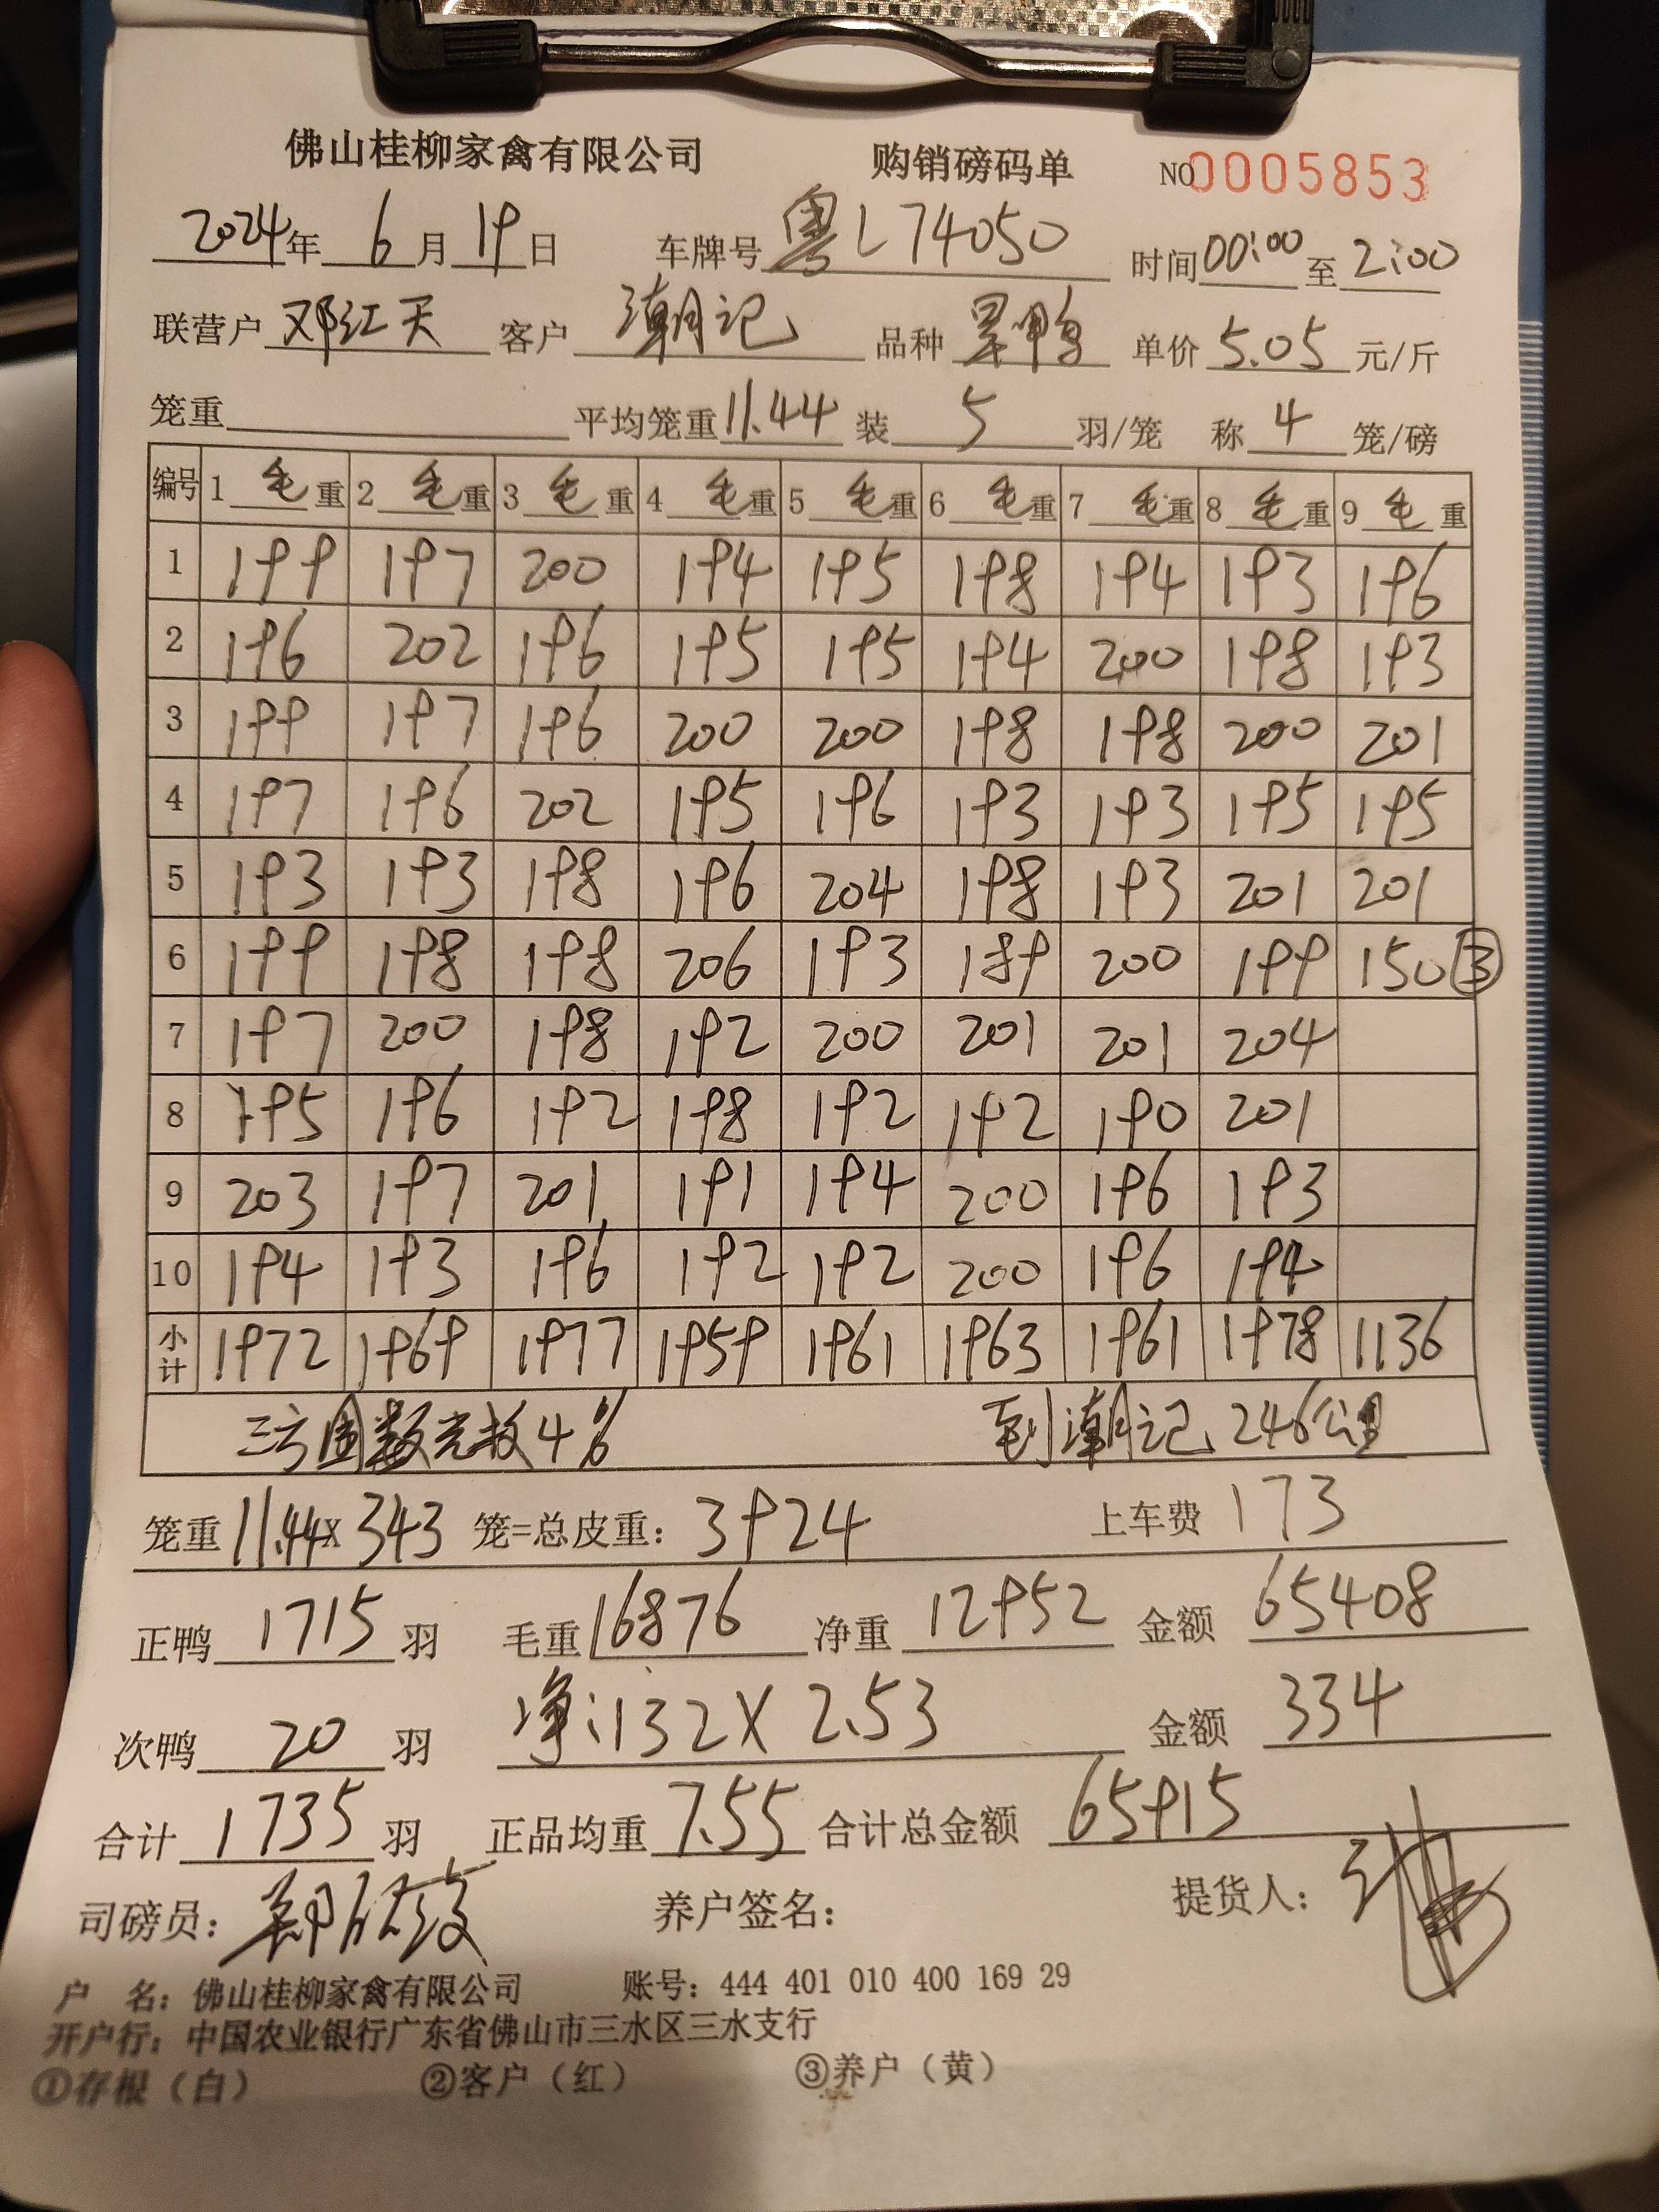 佛山桂柳家禽有限公司 购销磅码单 NO0005853
2024年 6月 19日 车牌号 粤L74050 时间 00:00 至 2:00
联营户 邓江天 客户 潮记 品种 鸭 单价 5.05 元/斤
笼重 平均笼重 11.44 装 5 羽/笼 称 4 笼/磅
编号 1 毛重 2 毛重 3 毛重 4 毛重 5 毛重 6 毛重 7 毛重 8 毛重 9 毛重
1 199 197 200 194 195 198 194 193 196
2 196 202 196 195 195 194 200 198 193
3 199 197 196 200 200 198 198 200 201
4 197 196 202 195 196 193 193 195 195
5 193 193 198 196 204 198 193 201 201
6 199 198 198 206 193 189 200 199 150 ③
7 197 200 198 192 200 201 201 204
8 195 196 192 198 192 192 190 201
9 203 197 201 191 194 200 196 193
10 194 193 196 192 192 200 196 194
小计 1972 1969 1977 1959 1961 1963 1961 1978 1136
4% 到潮记 246公里
笼重 11.44 x 343 笼=总皮重: 3924 上车费 173
正鸭 1715 羽 毛重 16876 净重 12952 金额 65408
次鸭 20 羽 净:132 X 2.53 金额 334
合计 1735 羽 正品均重 7.55 合计总金额 65915
司磅员: 养户签名: 提货人:
户 名: 佛山桂柳家禽有限公司 账号: 444 401 010 400 169 29
开户行: 中国农业银行广东省佛山市三水区三水支行
①存根（白） ②客户（红） ③养户（黄）